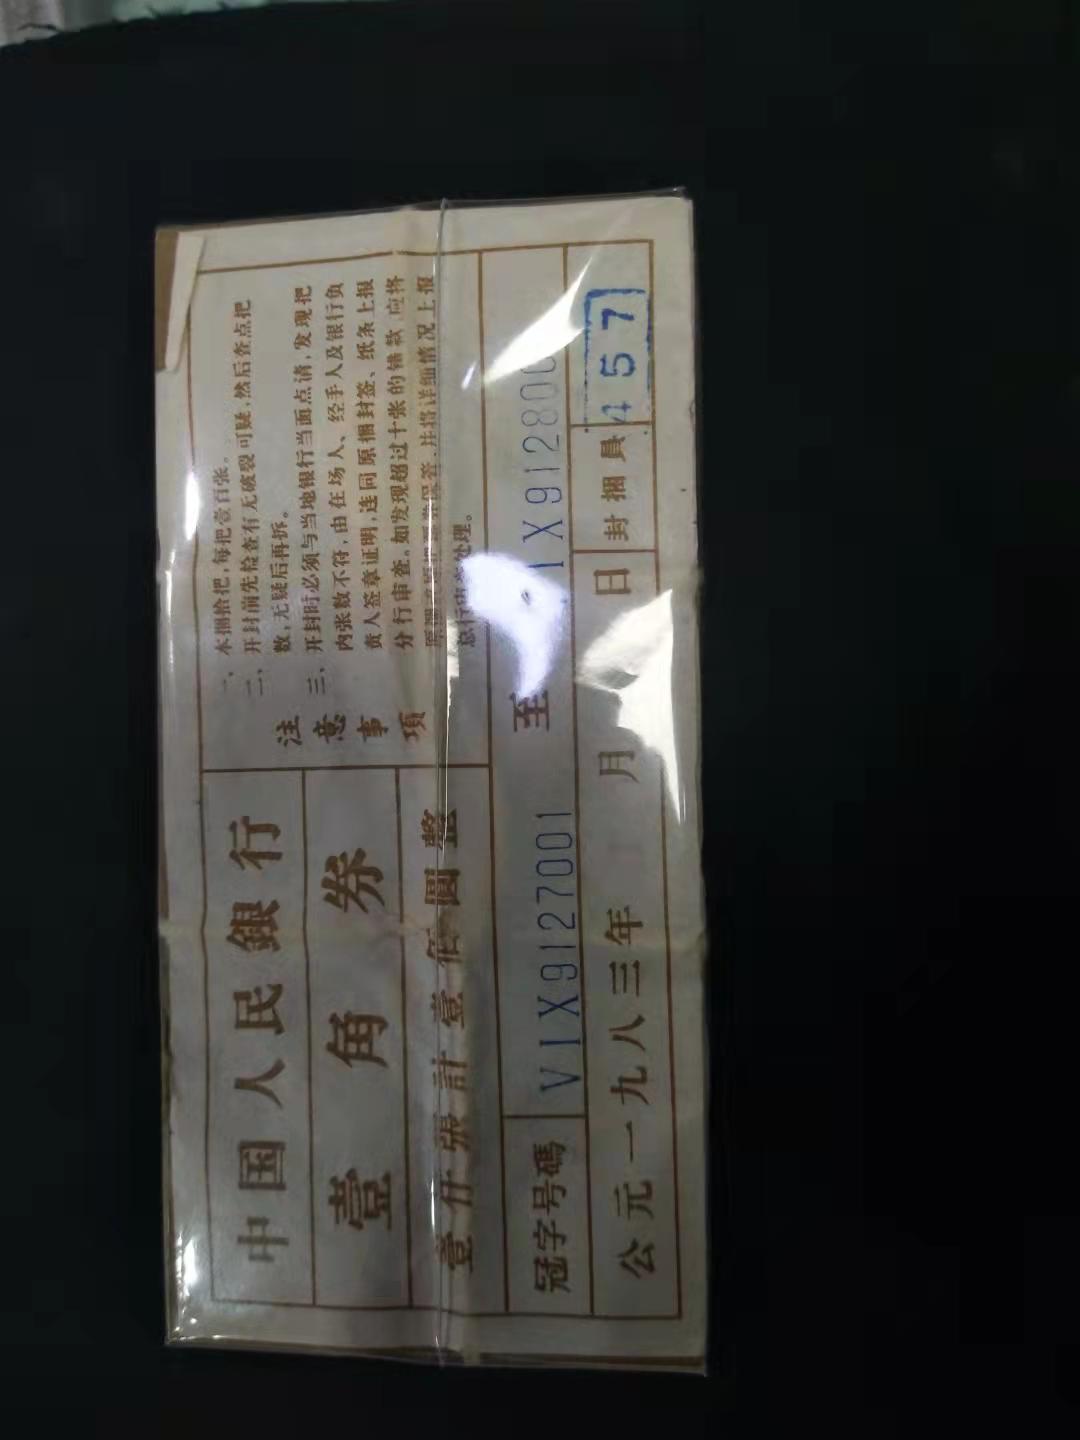 中国人民銀行
壹角券
壹仟張計壹佰圓整
注意事項
一、本捆拾把,每把壹百张。
二、开封前先检查有无破裂可疑,然后查点把
数,无疑后再拆。
三、开封时必须与当地银行当面点清,发现把
内张数不符,由在场人、经手人及银行负
责人签章证明,连同原捆封签、纸条上报
分行审查。如发现超过十张的错款,应将
原捆原把原券保管,并将详细情况上报
总行审查处理。
冠字号碼 VIX9127001 至 IX912800
公元一九八三年 月 日 封捆員 457